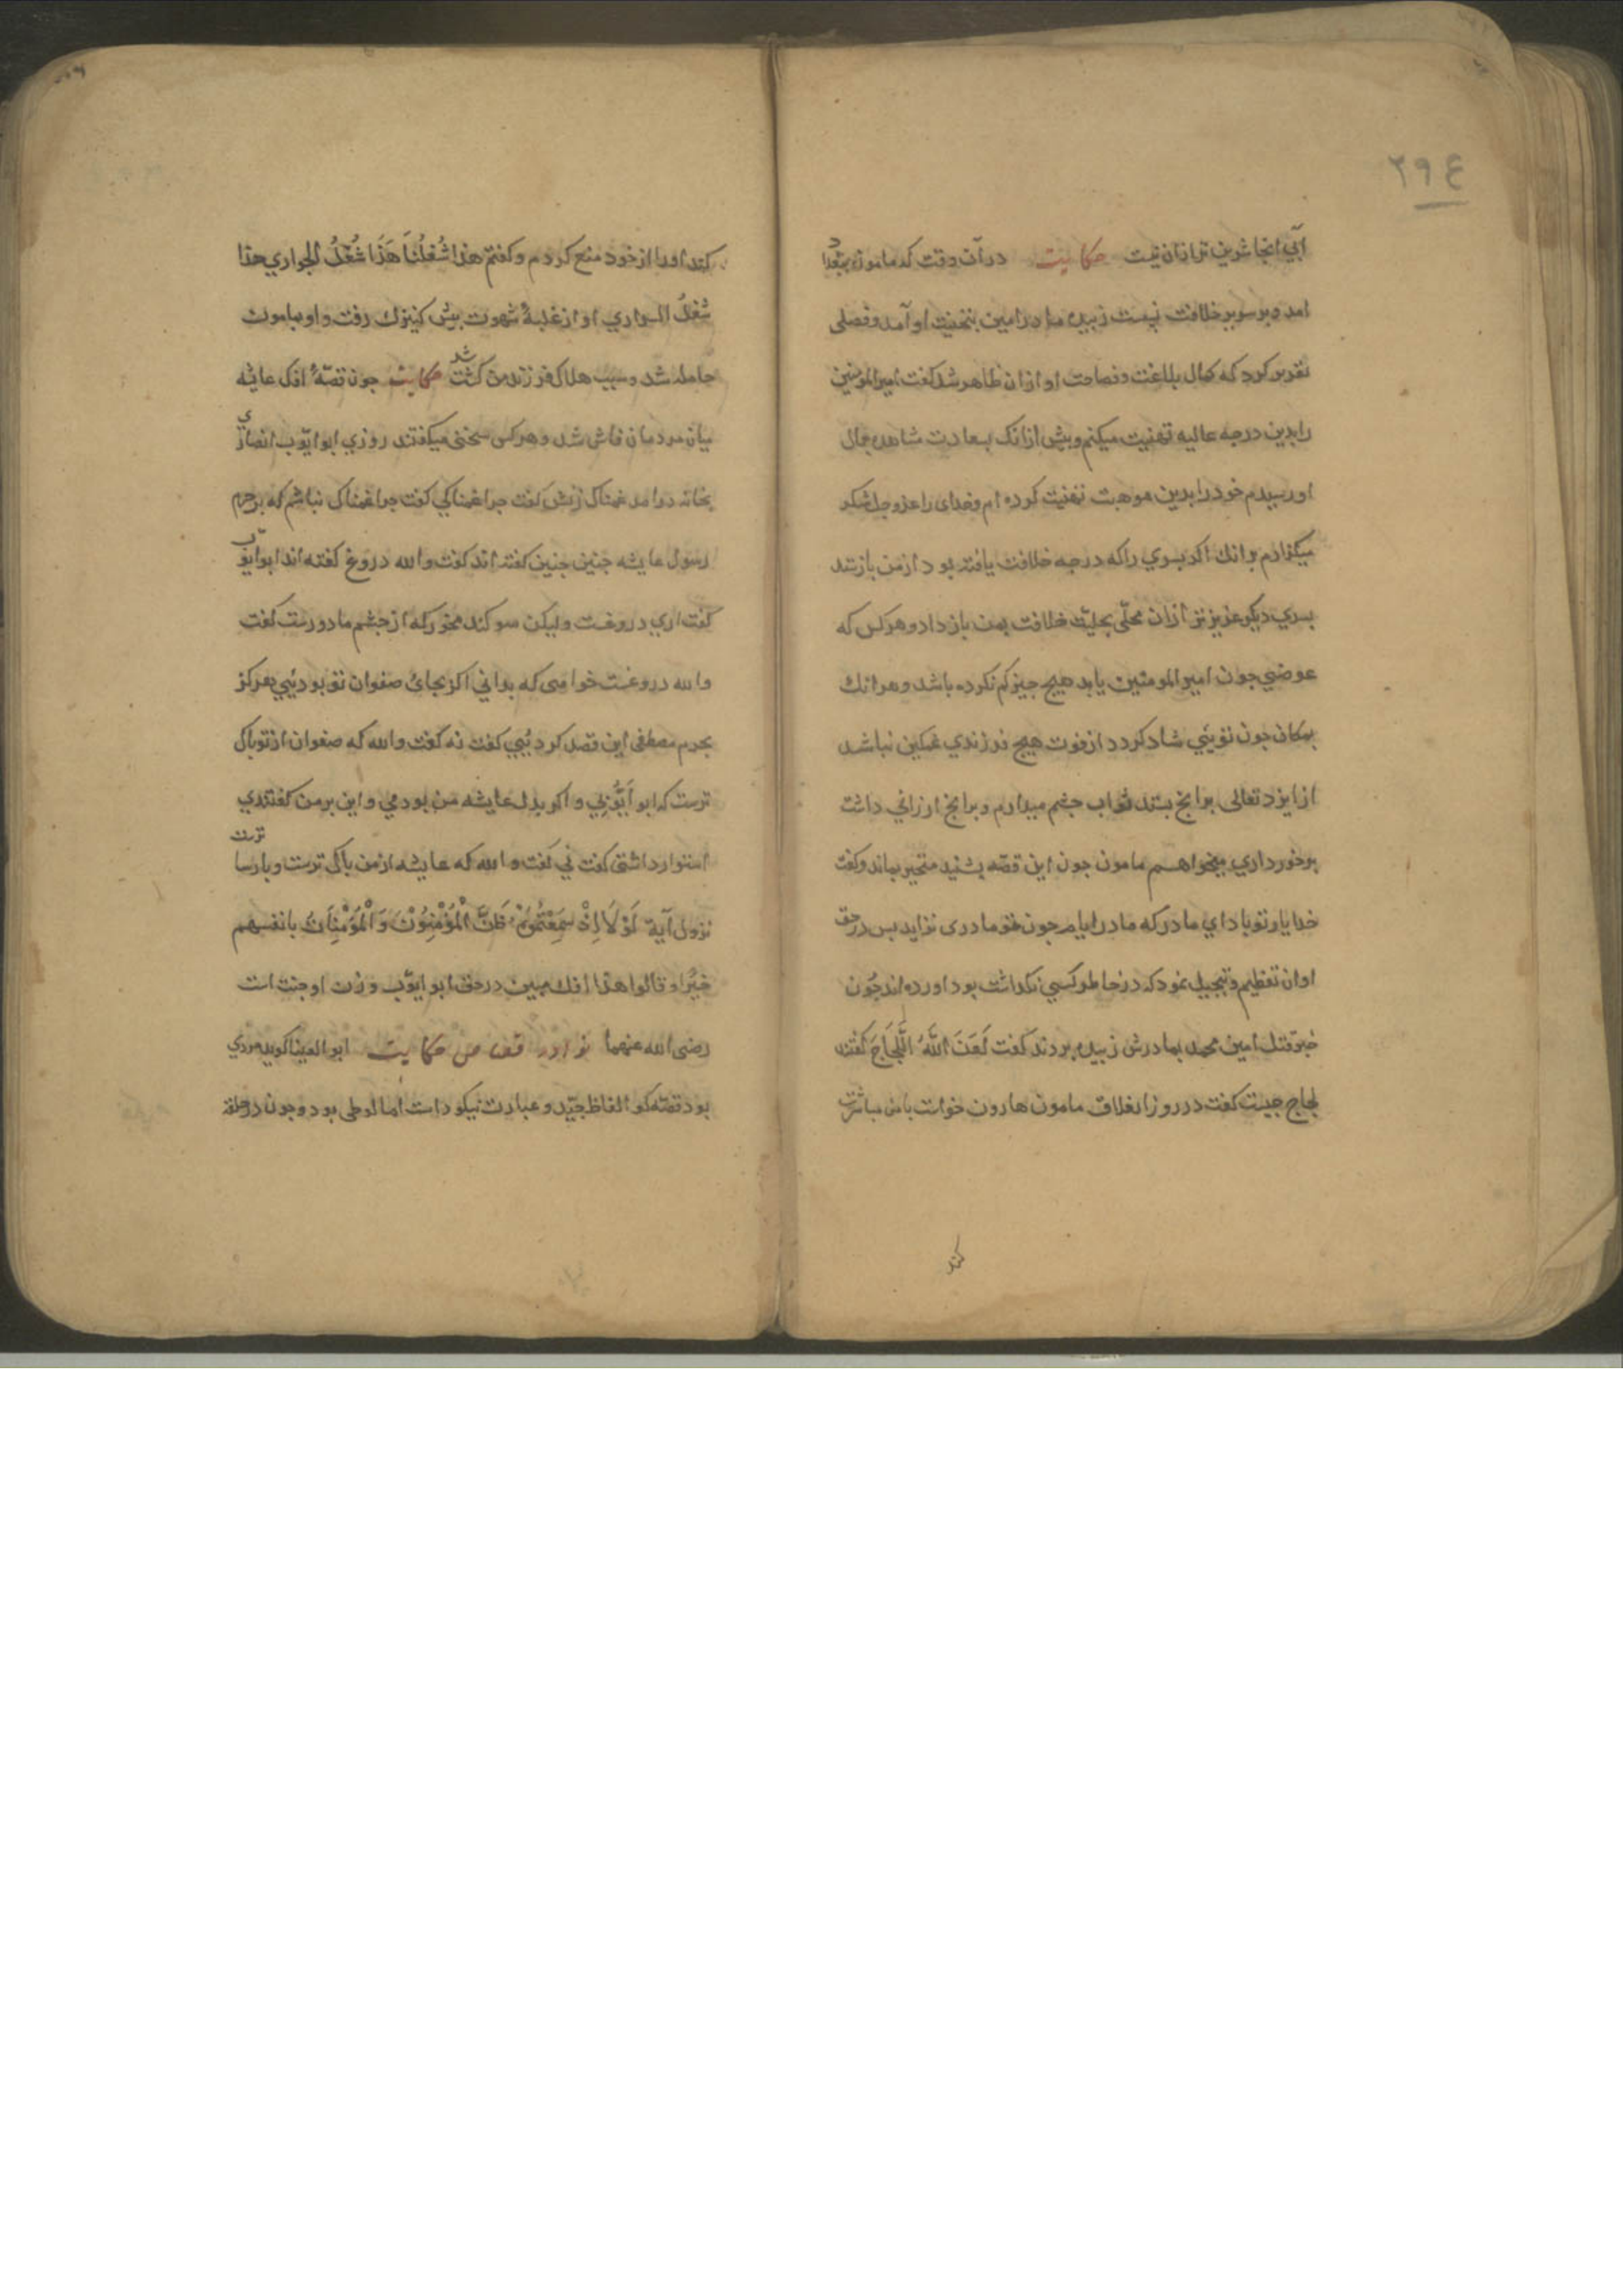 ٢٩٤
آبی انجا شرین تر ازان نیست حکایت در آن وقت که مامون ببغداد
امد و بر سریر خلافت نشست زبیده مادر امین بتهنیت او آمد و فصلی
تقریر کرد که کمال بلاغت و فصاحت او ازان ظاهر شد کفت امیر المومنین
رابدین درجه عالیه تهنیت میکنم و پیش ازانک بسعادت مشاهده جمال
او رسیدم خود را بدین موهبت تهنیت کرده ام و خدای را عز و جل شکر
میکزارم برانك اکر بسری راکه درجه خلافت یافته بود از من بازستد
بسری دیکر عزیزتر ازان محلّی بحلیت خلافت بمن باز داد و هرکس که
عوضی جون امیر المومنین یابد هیچ جیز کم نکرده باشد و هرانك
بمکان جون تویئی شاد کردد از فوت هیچ فرزندی غمکین نباشد
از ایزد تعالی برانج بستد ثواب جشم میدارم و برانج ارزانی داشت
برخورداری میخواهم مامون جون این قصّه بشنید متحیر بماند و کفت
خدا یار تو باد ای مادر که مادر ایام جون تو مادری نزاید بس در حق
او ان تعظیم و تبجیل نمود که در خاطر کسی نکذاشت بود اورده اند جون
خبر قتل امین محمد بمادرش زبیده بردند کفت لَعَنَ اللَّهُ اللَّجَاجَ کفتند
لجاج جیست کفت در روز انغلاق مامون هارون خواست بامن مباشرت
کند
کند اورا از خود منع کردم و کفتم هذا شُغلُنَا هَذَا شُغْلُ الجواری هذا
شُغلُ السراری او از غلبهٔ شهوت بیش کنیزك رفت و او بمامون
حامله شد و سبب هلاک فرزند من کشت شد حکایت جون قصّهٔ افک عایشه
میان مردمان فاش شد و هرکس سخنی میکفتند روزی ابو ایّوب انصاری
بخانه درامد غمناک زنش کفت جرا غمناکی کفت جرا غمناک نباشم که بر حرم
رسول عایشه جنین جنین کفته اند کفت والله دروغ کفته اند ابو ایّوب
کفت اری دروغست ولیکن سوکند مخور که از جشم ما دورست کفت
والله دروغست خواهی که بدانی اکر بجای صفوان تو بودیئی هرکز
بحرم مصطفی این قصد کردیئی کفت نه کفت والله که صفوان از تو پاک
ترست که ابو أَیّوبی و اکر بدل عایشه من بودمی و این بر من کفتندی
استوار داشتی کفت نی کفت والله که عایشه از من باک ترست و بارسا ترست
نزول آیة لَوْلَا إِذْ سَمِعْتُمُوهُ ظَنَّ الْمُؤْمِنُوْنَ وَالْمُؤْمِنَاتُ بانفسهم
خیرًا و قالوا هذا افك مبین در حق ابو ایّوب و زن او جنت است
رضی الله عنهما نوادر قصاص حکایت ابو العینا کوید مردی
بود قصّه کو الفاظ جیّد و عبارت نیکو داشت اما لوطی بود و جون در حلقه